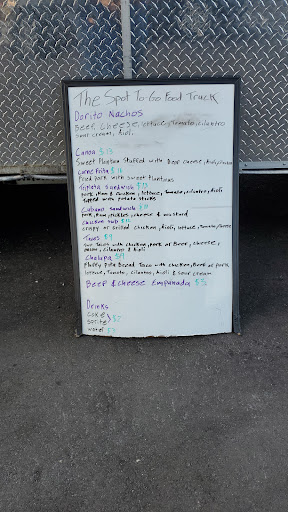 The Spot To Go Food Truck
Dorito Nachos
Beef, cheese, lettuce, Tomato, cilantro
sour cream, Aioli.
Canoa $13
Sweet Plantain Stuffed with Beef cheese, Aioli,
Carne Frita $16
Fried Pork with sweet Plantains
Tripleta Sandwich $13
Pork, Ham & chicken, lettuce, Tomato, cilantro, Aioli
Topped with potato sticks
Cubano Sandwich $11
Pork, Ham, pickles, cheese & mustard
Chicken Sub $12
crispy or Grilled chicken, Aioli, lettuce, Tomato, cheese
Tacos $9
Two Tacos with chicken, pork or Beef, cheese,
onion, cilantro & Aioli
Chalupa $9
Fluffy Pita Bread Taco with chicken, Beef or pork,
lettuce, Tomato, cilantro, Aioli & sour cream
Beef & cheese Empanada
Drinks
Coke
Sprite $2
water